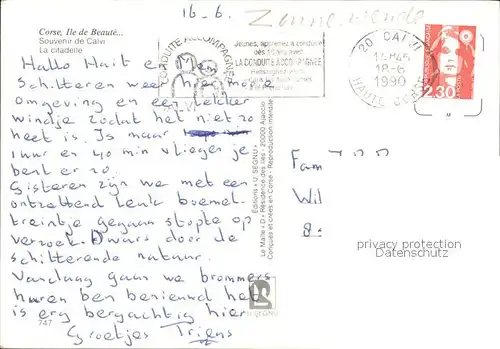 16-6.
Zonne-wende
Corse, Ile de Beauté...
Souvenir de Calvi
La citadelle
Hallo Mait e
Schitteren weer hier mooie
omgeving en een lekker
windje zodat het niet zo
heet is. Is maar
1 uur en 40 min vliegen je
bent er zo.
Gisteren zijn we met een
ontzettend leuk boemel-
treintje gegaan stopte op
verzoek. Dwars door de
schitterende natuur.
Vandaag gaan we brommers
huren ben benieuwd het
is erg bergachtig hier
Groetjes Triens
747
CONDUITE ACCOMPAGNEE
Jeunes, apprenez à conduire
dès 16 ans avec
LA CONDUITE ACCOMPAGNEE
20 CALVI
14H45
18-6
1990
HAUTE CORSE
2,30
Editions "U. SEGNU"
Le Maite "D" Résidence des Iles - 20000 Ajaccio
Conçues et créées en Corse - Reproduction interdite
U SEGNU
Fam
Wil
8
privacy protection
Datenschutz